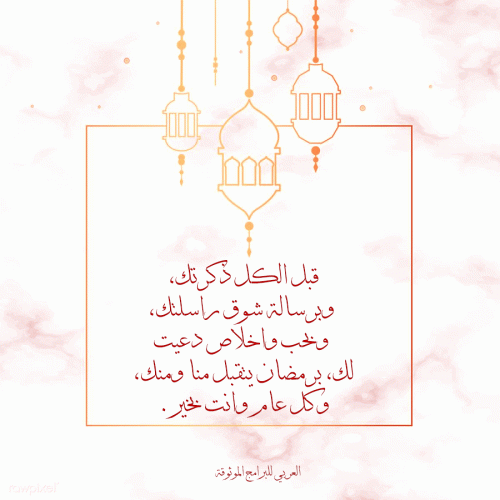 قبل الكل ذكرتك،
وبرسالة شوق راسلتك،
وبحب واخلاص دعيت
لك، برمضان يتقبل منا ومنك،
وكل عام وانت بخير .
العربي للبرامج الموثوقة
rawpixel